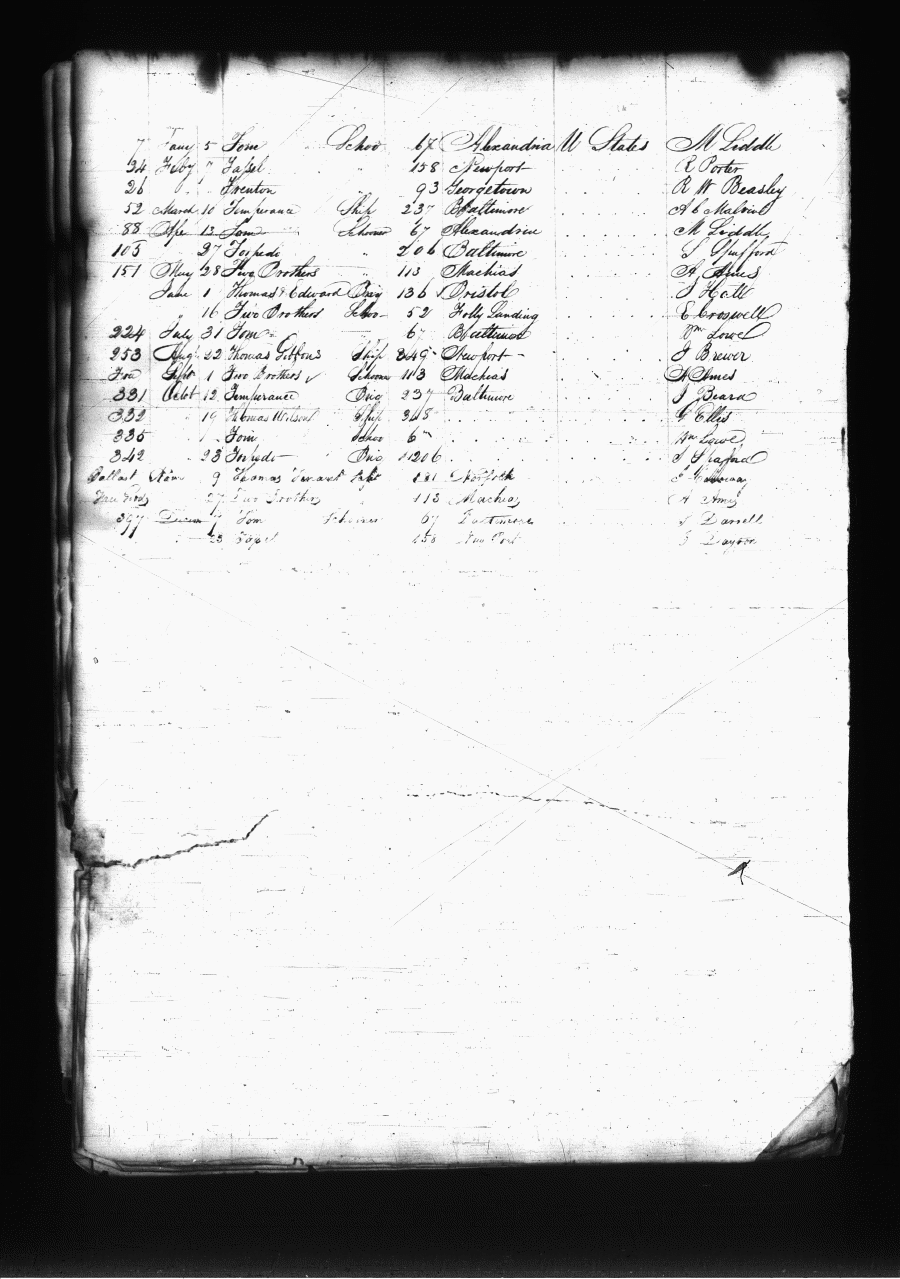 7 Jany 5 Tom Schoo 67 Alexandria U States M Liddle
34 Feby 7 Tassel " 158 Newport R Porter
26 " " Trenton " 93 Georgetown R W Beasley
52 March 10 Temperance Ship 237 Baltimore
88 Apr 13 Tom Schooner 67 Alexandria M Liddle
105 27 Torpedo " 206 Baltimore S Spafford
151 May 28 Two Brothers " 113 Machias A Ames
June 1 Thomas & Edward Brig 136 Bristol Hall
" 16 Two Brothers Schoo 52 Folly Landing E Croswell
224 July 31 Tom 67 Baltimore Wm Lowe
253 Aug 22 Thomas Gibbons Ship Newport J Brewer
Sept 1 Two Brothers Schooner 113 Machias A Ames
331 Octob 12 Temperance Brig 237 Baltimore J Beard
332 19 Thomas Wilson Ship 348 G Ellis
335 " Tom Schoo 67 Wm Lowe
342 23 Torpedo Brig 206 S Spafford
Ballast Nov 9 Thomas Norfolk
27 Two Brothers 113 Machias A Ames
397 Decem 7 Tom Schooner 67 Baltimore Darrell
23 Tassel 158 New Port